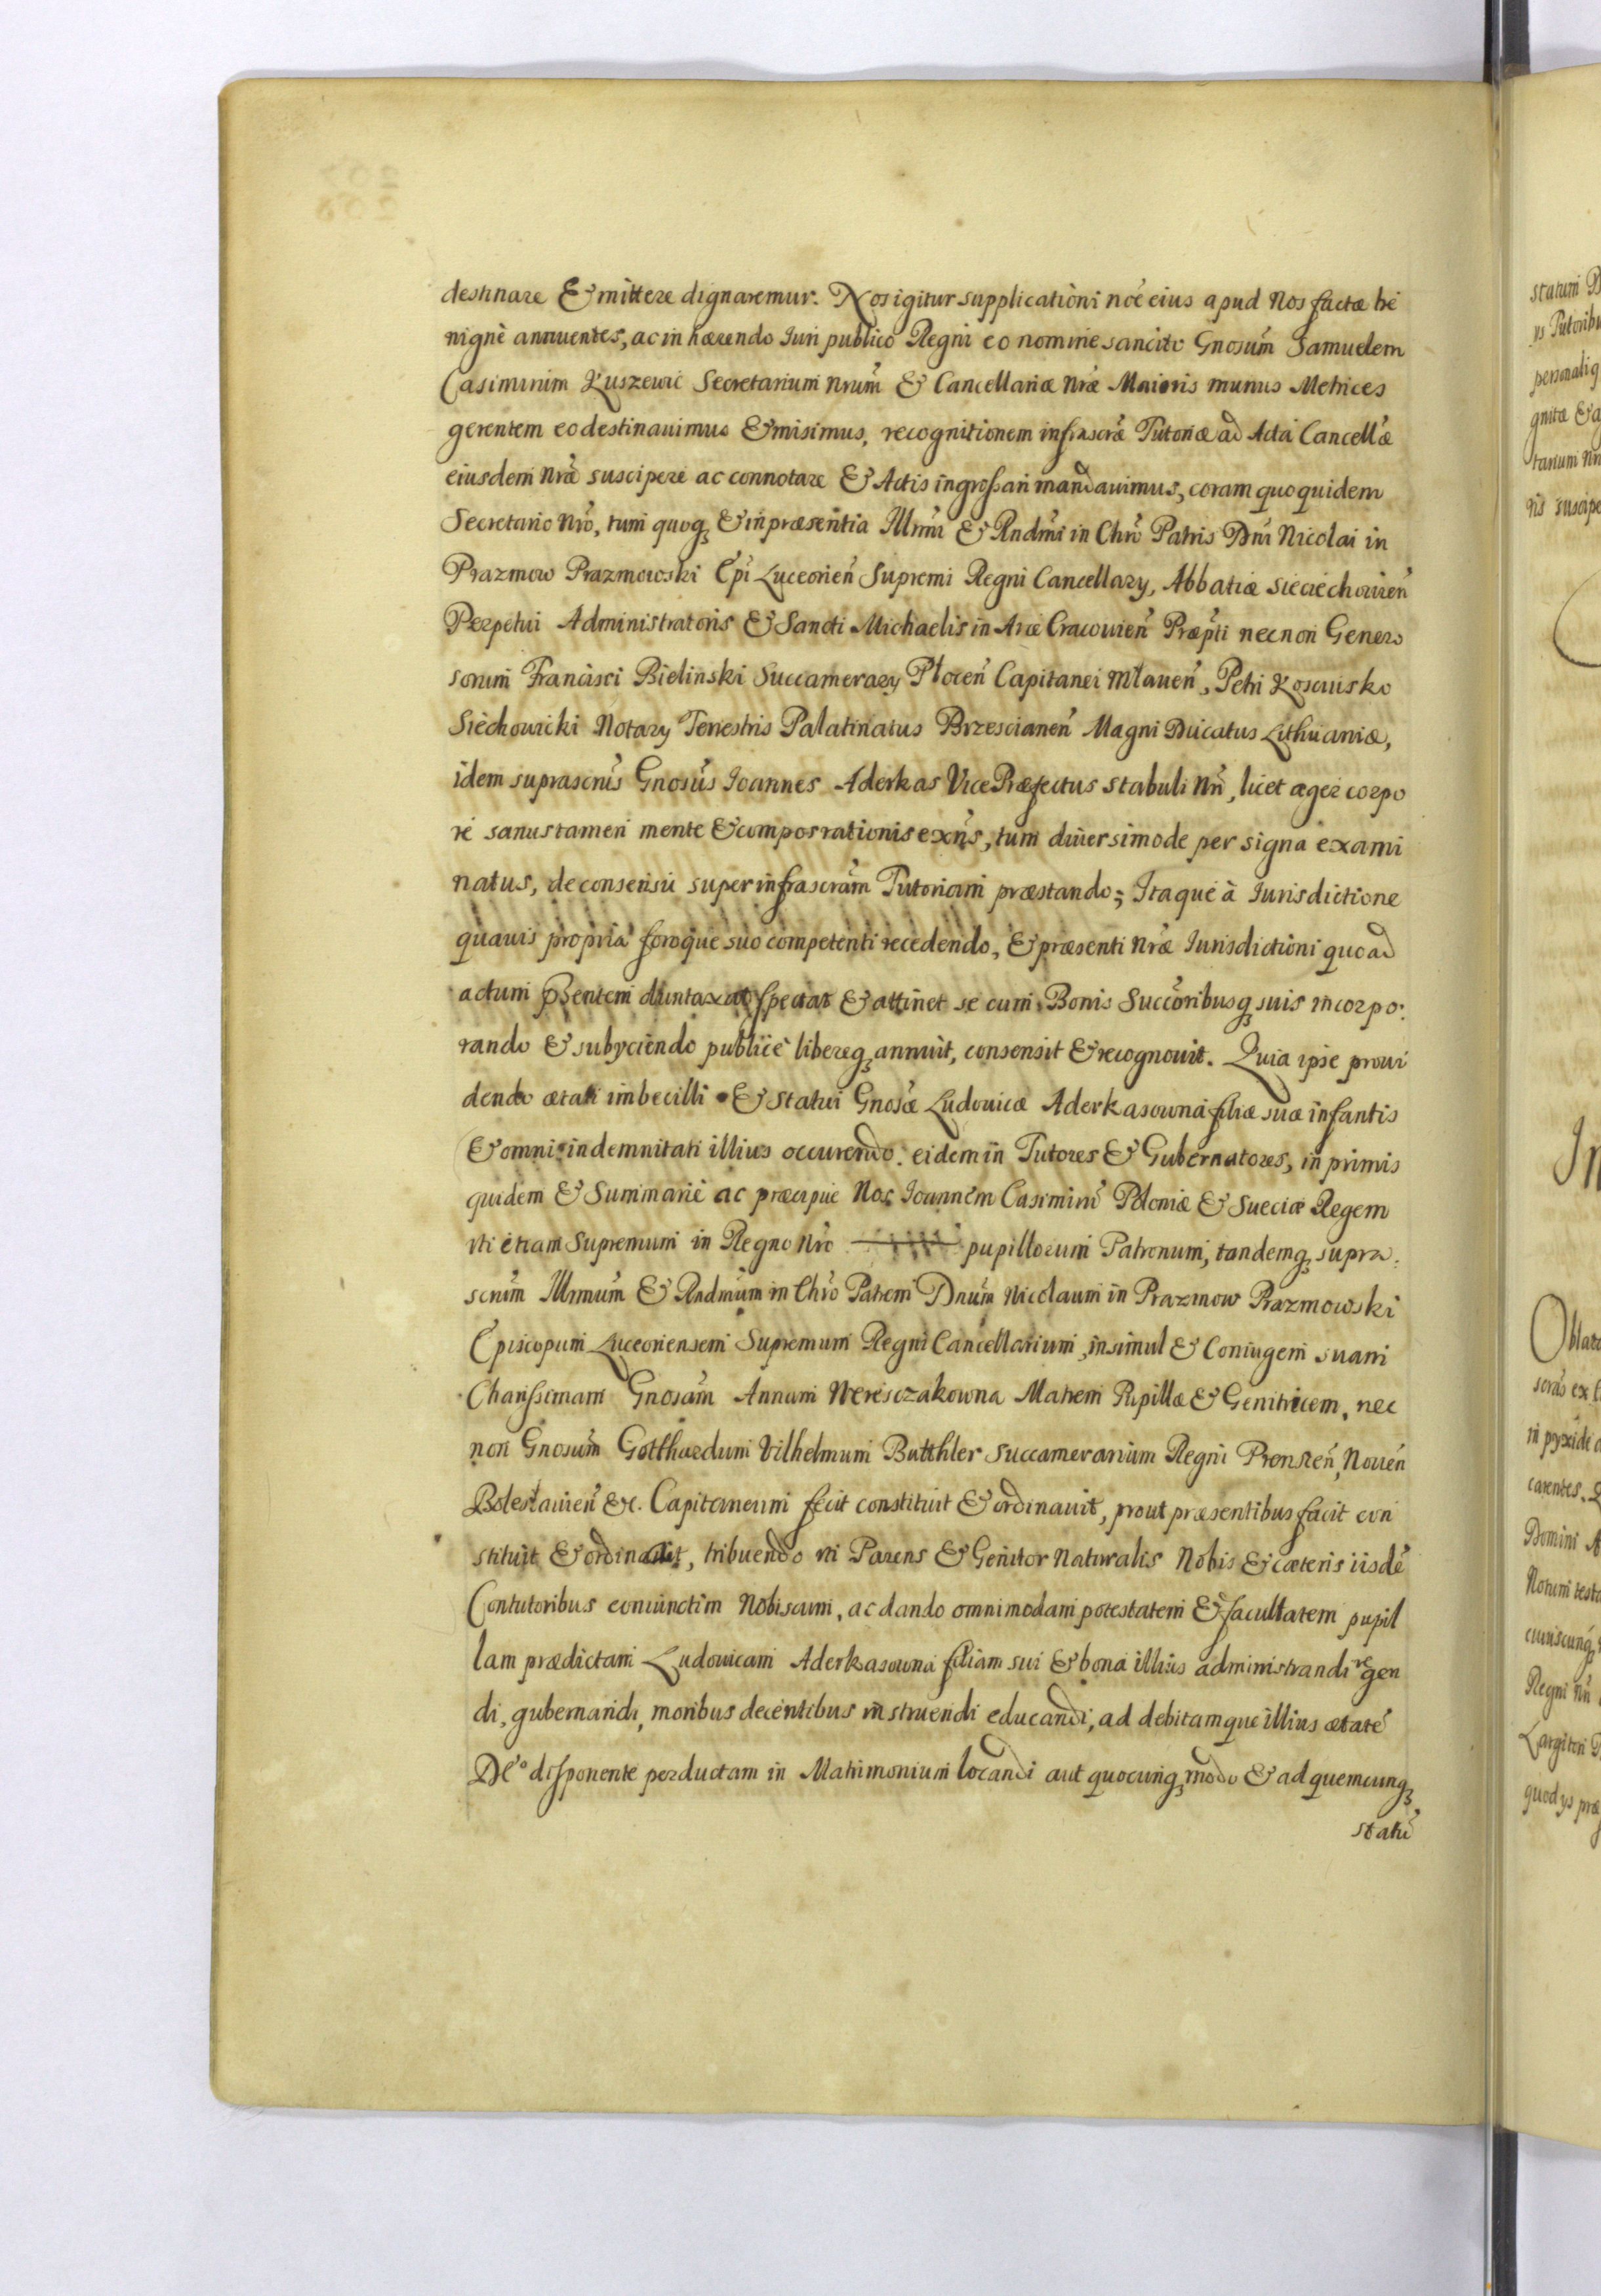 destinare & mittere dignaremur. Nos igitur supplicationi noē eius apud Nos factæ be
nignè annuentes, ac in hærendo Iuri publico Regni eo nomine sancito Gnosum̃ Samuelem
Casimirum Kuszewic Secretarium nrum̃ & Cancellariæ nræ̃ Maioris munus Metrices
gerentem eo destinauimus & misimus, recognitionem infrascræ̃ Tutoriæ ad Acta Cancellæ̃
eiusdem nræ̃ suscipere ac connotare & Actis ingrossari mandauimus, coram quo quidem
Secretario Nrõ, tum quoq₃ & in præsentia Illrmĩ & Rndmĩ in Chrõ Patris Dnĩ Nicolai in
Prazmow Prazmowski Epĩ Luceorień Supremi Regni Cancellary, Abbatiæ Sieciechouień
Perpetui Administratoris & Sancti Michaelis in Arce Cracouień Præptĩ necnon Genero
sorum Francisci Bielinski Succamerary Płoceń Capitanei Młaueń, Petri Kosciusko
Siechowicki Notary Terrestris Palatinatus Brzescianeń Magni Ducatus Lithuaniæ,
idem suprascrus̃ Gnosus̃ Ioannes Aderkas Vice Præfectus stabuli Nrĩ, licet æger corpo
re sanus tamen mente & compos rationis exns̃, tum diuersimode per signa exami
natus, de consensu super infrascram̃ Tutoriam præstando; Itaque à Iurisdictione
quauis propria foroque suo competenti recedendo, & præsenti nræ̃ Iurisdictioni quoad
actum pñsentem duntaxat spectat & attinet se cum Bonis Succoribusq₃ suis incorpo:
rando & subyciendo publicè libereq₃ annuit, consensit & recognouit. Quia ipse proui
dendo ætati imbecilli & statui Gnosæ̃ Ludouicæ Aderkasowna filiæ suæ infantis
& omni indemnitati illius occurendo. eidem in Tutores & Gubernatores, in primis
quidem & Summariè ac præcipuè Nos Ioannem Casimirũ Poloniæ & Sueciæ Regem
vti etiam Supremum in Regno Nrõ pupillorum Patronum, tandemq₃ supra:
scrum̃ Illrmum̃ & Rndmum̃ in Chrõ Patrem Dnum̃ Nicolaum in Prazmow Prazmowski
Episcopum Luceoriensem Supremum Regni Cancellarium, insimul & Coniugem suam
Charissimam Gnosam̃ Annam Meresczakowna Matrem Pupillæ & Genitricem, nec
non Gnosum̃ Gotthardum Vilhelmum Butthler Succamerarium Regni Prensneń, Noueń
Bolestauień &c. Capitaneum fecit constituit & ordinauit, prout præsentibus facit con
stituit & ordinat, tribuendo vti Parens & Genitor naturalis Nobis & cæteris iisdẽ
Contutoribus coniunctim Nobiscum, ac dando omnimodam potestatem & facultatem pupil
lam prædictam Ludouicam Aderkasowna filiam sui & bona illius administrandi regen
di, gubernandi, moribus decentibus instruendi educandi, ad debitamque illius ætatẽ
Deo disponente perductam in Matrimonium locandi aut quocunq₃ modo & ad quemcunq₃
statũ